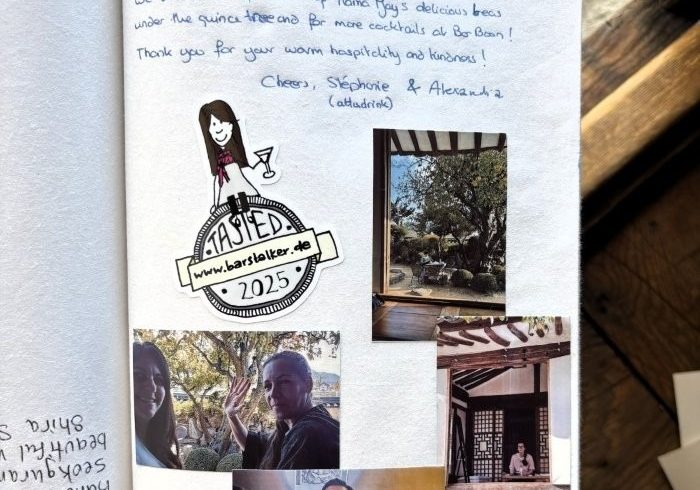 Mama Jay's delicious beas
under the quince tree and for more cocktails at Bar Boon!
Thank you for your warm hospitality and kindness!
Cheers, Stéphanie & Alexandra
(attadrink)
TASTED
www.barstalker.de
2025
Shira
beautiful
Seokguram